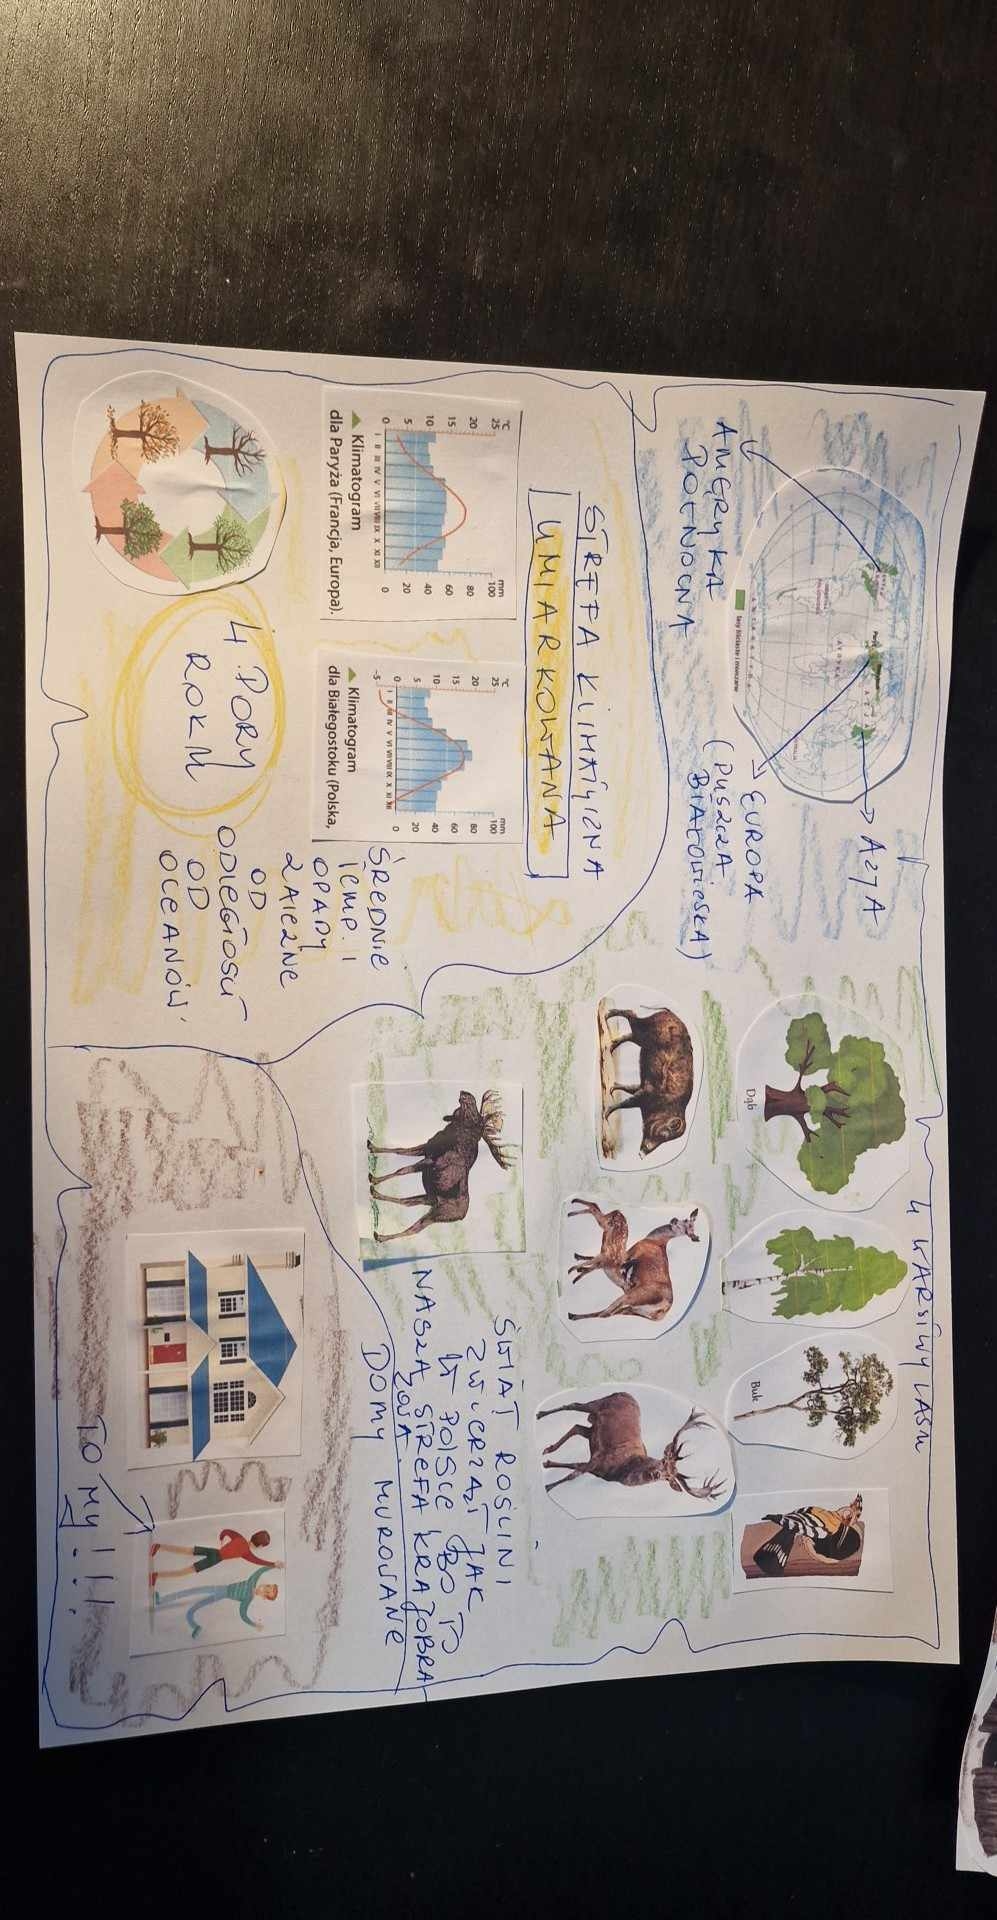 AMERYKA
PÓŁNOCNA
AZJA
EUROPA
(PUSZCZA
BIAŁOWIESKA)
lasy liściaste i mieszane
STREFA KLIMATYCZNA
UMIARKOWANA
°C
25
20
15
10
5
0
mm
100
80
60
40
20
0
I II III IV V VI VII VIII IX X XI XII
Klimatogram
dla Paryża (Francja, Europa).
°C
25
20
15
10
5
0
-5
mm
100
80
60
40
20
0
I II III IV V VI VII VIII IX X XI XII
Klimatogram
dla Białegostoku (Polska,
4 PORY
ROKU
ŚREDNIE
TEMP. I
OPADY
ZALEŻNE
OD
ODLEGŁOŚCI
OD
OCEANÓW.
4 WARSTWY LASU
Dąb
Buk
ŚWIAT ROŚLIN I
ZWIERZĄT JAK
W POLSCE BO TO
NASZA STREFA KRAJOBRA
ZOWA.
DOMY MUROWANE
TO MY!!!!